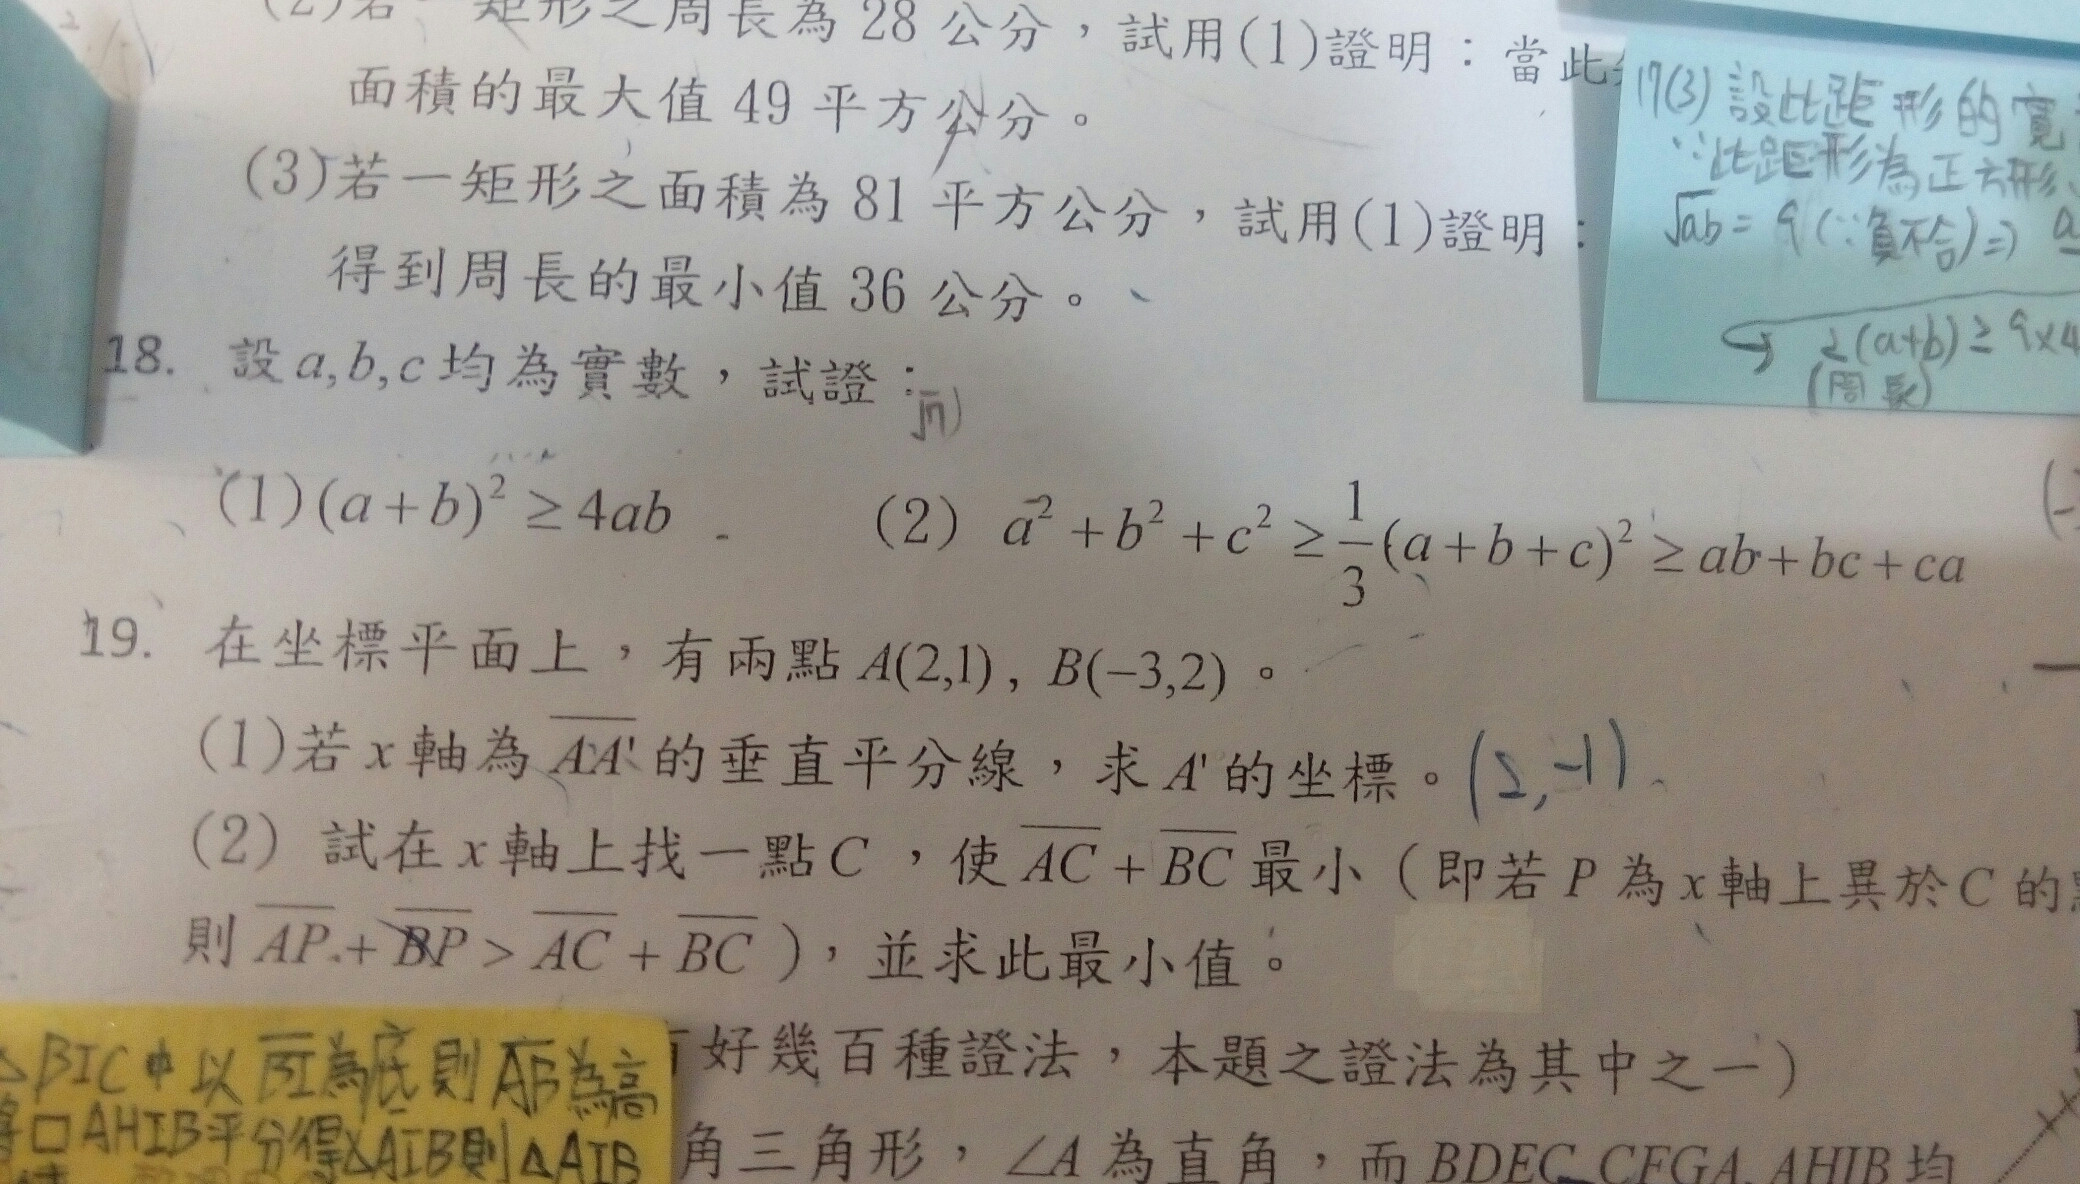 (2)若一矩形之周長為 28 公分，試用(1)證明：當此
面積的最大值 49 平方公分。
(3)若一矩形之面積為 81 平方公分，試用(1)證明：
得到周長的最小值 36 公分。
17(3) 設此距形的寬
∵此距形為正方形
√ab = 9 (∵負不合) ⇒
2(a+b) ≥ 9×4
(周長)
18. 設 a,b,c 均為實數，試證：
(1) (a+b)² ≥ 4ab
(2) a² + b² + c² ≥ 1/3 (a+b+c)² ≥ ab+bc+ca
19. 在坐標平面上，有兩點 A(2,1), B(−3,2)。
(1)若 x 軸為 AA' 的垂直平分線，求 A' 的坐標。(2,-1)
(2) 試在 x 軸上找一點 C，使 AC + BC 最小（即若 P 為 x 軸上異於 C 的
則 AP + BP > AC + BC），並求此最小值。
好幾百種證法，本題之證法為其中之一）
角三角形，∠A 為直角，而 BDEC, CFGA, AHIB 均
△BIC中以BI為底則AB為高
□AHIB平分得△AIB則△AIB